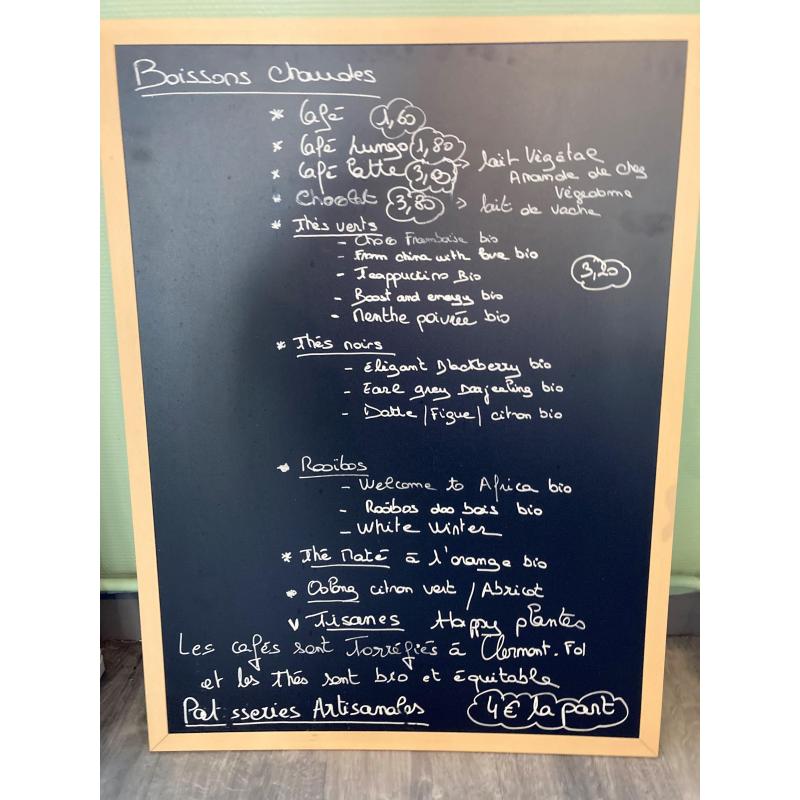 Boissons chaudes
* Café 1,60
* Café Lungo 1,80
* Café Latte 3,00
lait Végétal
Amande de chez
Végédome
* Chocolat 3,80 > lait de vache
* Thés verts
- Choco Framboise bio
- From china with love bio
- Teappuccino Bio
3,20
- Boost and energy bio
- Menthe poivrée bio
* Thés noirs
- Elégant Blackberry bio
- Earl grey Darjeeling bio
- Datte / Figue / citron bio
* Rooïbos
- Welcome to Africa bio
- Rooïbos des bois bio
- White Winter
* Thé Maté à l'orange bio
* Oolong citron vert / Abricot
v Tisanes Happy plantes
Les cafés sont Torréfiés à Clermont. Fd
et les Thés sont bio et équitable
Pat sseries Artisanales 4€ la part